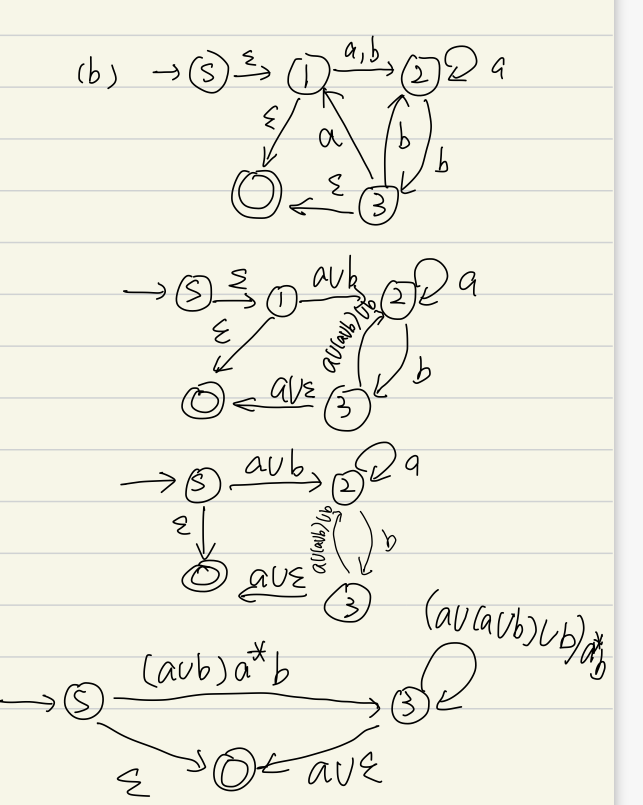 (b) → S ε → 1 a,b → 2 a
ε a b b
ε 3
→ S ε → 1 a∪b 2 a
ε a∪(a∪b)∪b b
a∪ε 3
→ S a∪b 2 a
ε a∪(a∪b)∪b b
a∪ε 3
(a∪(a∪b)∪b)a*b
(a∪b)a*b
S 3
ε a∪ε